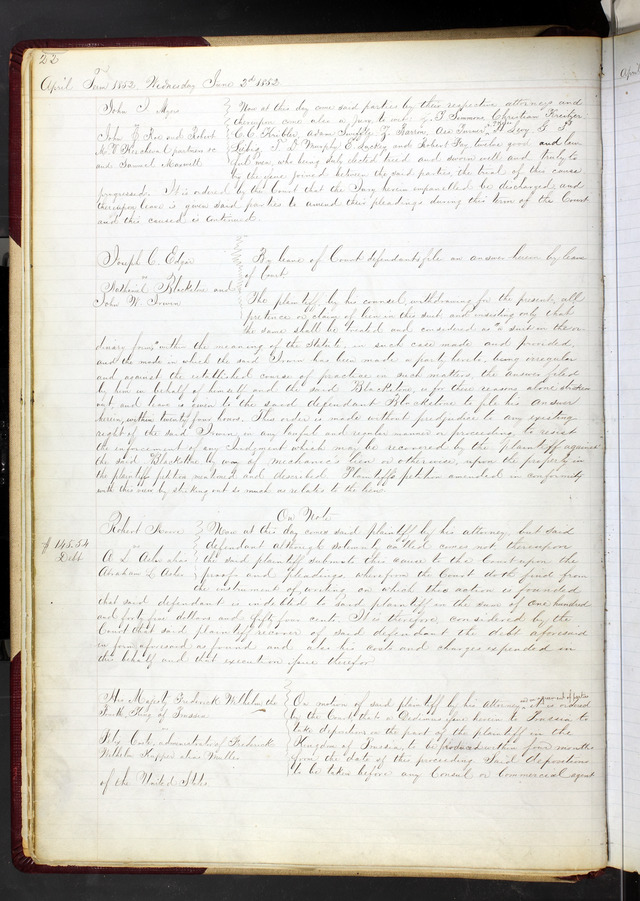 22
April Term 1852, Wednesday June 2d 1852
John J. Myers
John and Robert
N. & partners &c
and Samuel Maxwell
Now at this day come said parties by their respective attorneys and
thereupon came also a jury to wit: G. Simmons, Christian
C. C. Adam Z. Asa Levy G. F.
T. E. Lackey and Robert Fay twelve good and law
ful men, who being duly elected tried and sworn well and truly to
try the issue joined between the said parties, the trial of this cause
progressed. It is ordered by the Court that the Jury herein empannelled be discharged and
thereupon leave is given said parties to amend their pleadings during this term of the Court
and this cause is continued.
Joseph C. Edgar
vs
Nathaniel Blackstone and
John W. Irwin
By leave of Court defendants file an answer herein by leave
of Court
The plaintiff by his counsel, withdrawing for the present, all
pretence or claim of lien in this suit and insisting only that
the same shall be treated and considered as "a suit in the or
dinary form" within the meaning of the Statute, in such case made and provided,
and the mode in which the said Irwin has been made a party hereto being irregular
and against the established course of practice in such matters, the answer filed
by him in behalf of himself and the said Blackstone, is for these reasons alone stricken
out, and leave is given to the said defendant Blackstone to file his answer
herein, within twenty four hours. This order is made without prejudice to any existing
right of the said Irwin, in any legal and regular manner or proceeding to resist
the enforcement of any Judgment which may be recovered by the Plaintiff against
the said Blackstone by way of Mechanic's lien or otherwise, upon the property in
the plaintiffs petition mentioned and described. Plaintiffs petition amended in conformity
with this view by striking out so much as relates to the lien.
On Note
$145.54
Debt
Robert
vs
A. L. alias
Abraham L.
Now at this day comes said plaintiff by his attorney, but said
defendant although solemnly called comes not, thereupon
the said plaintiff submits this cause to the Court upon the
proofs and Pleadings, wherefore the Court doth find from
the instrument of writing on which this action is founded
that said defendant is indebted to said plaintiff in the sum of One hundred
and forty five dollars and fifty four cents. It is therefore, considered by the
Court that said plaintiff recover of said defendant the debt aforesaid
in form aforesaid as found and also his costs and charges expended in
this behalf and that execution issue therefor
His Majesty Frederick Wilhelm the
Fourth, King of Prussia
vs
administrator of Frederick
Wilhelm alias
On motion of said plaintiff by his attorney and on agreement of parties it is ordered
by the Court that a Dedimus issue herein to Prussia to
take depositions on the part of the plaintiff in the
Kingdom of Prussia, to be produced within four months
from the date of this proceeding. Said depositions
to be taken before any Consul or Commercial agent
of the United States
April